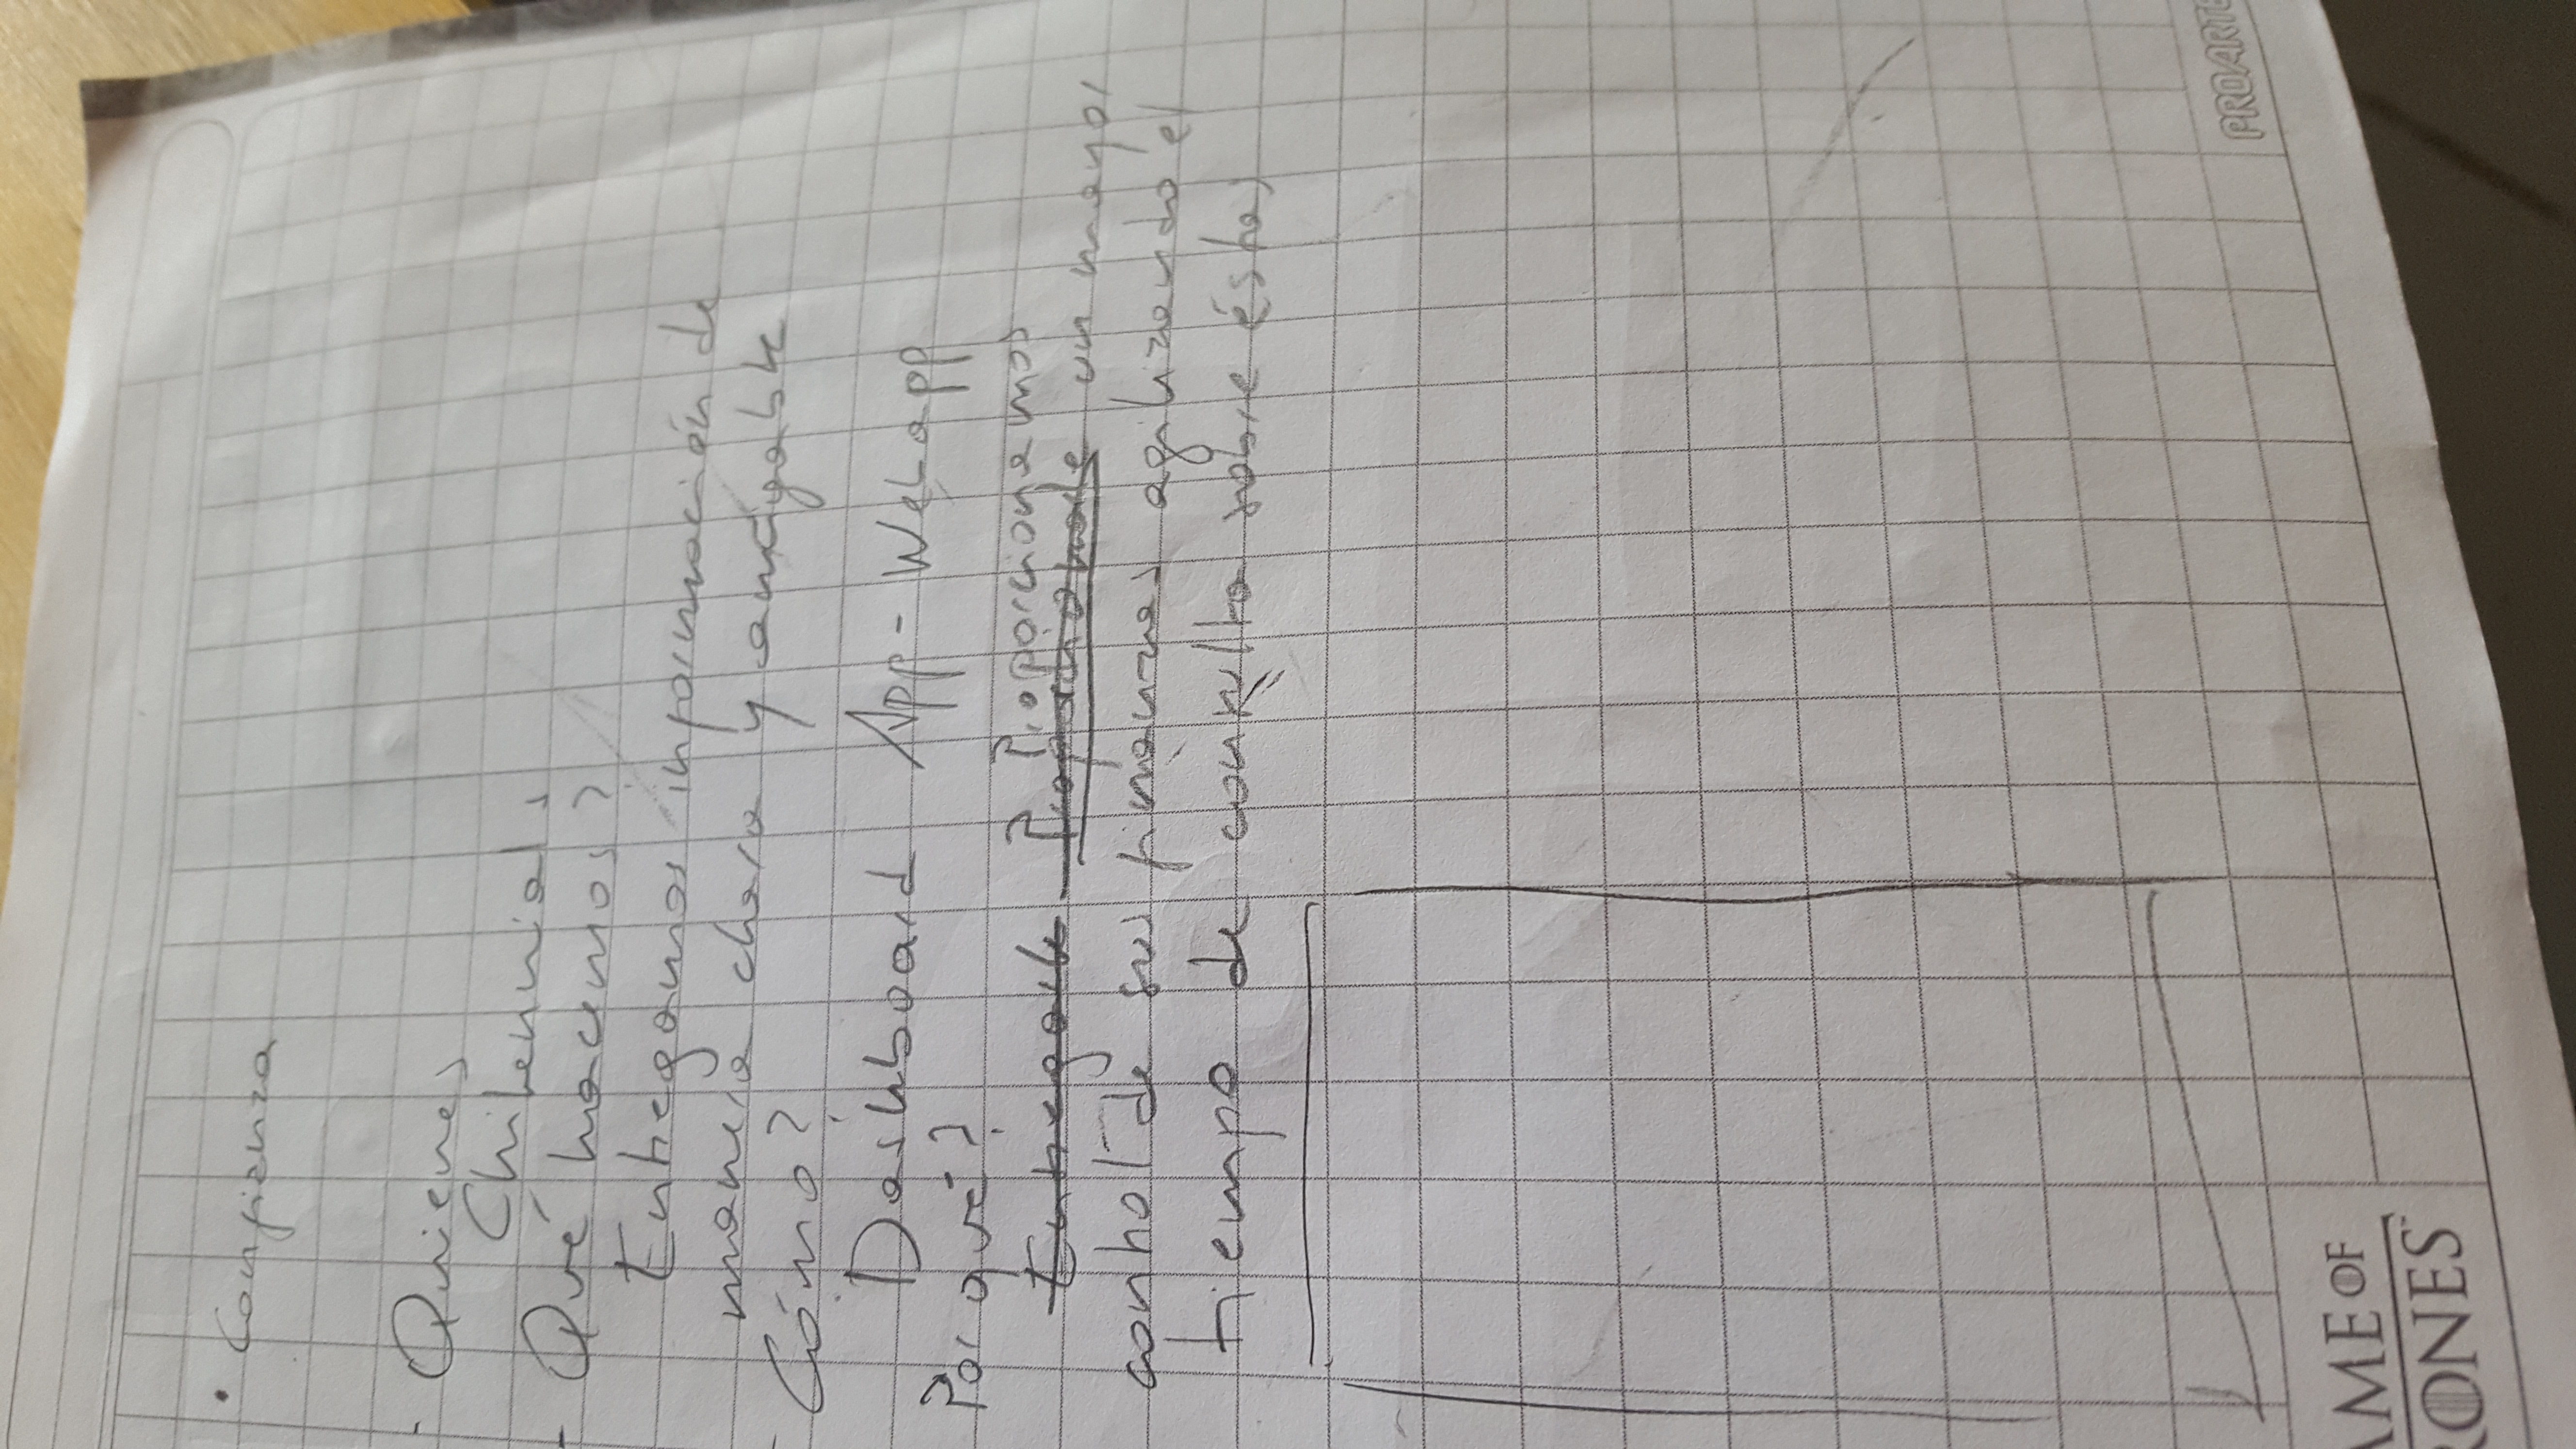 • Confianza
- Quienes
Chilennials
- Qué hacemos?
Entregamos información de
manera clara y amigable
- Cómo?
Dashboard App - Webapp
Por qué?
Proporcionamos
Entregarle Proporcionarle un mayor
control de sus finanzas agilizando el
tiempo de consulta sobre éstas
PROARTE
AME OF
RONES™